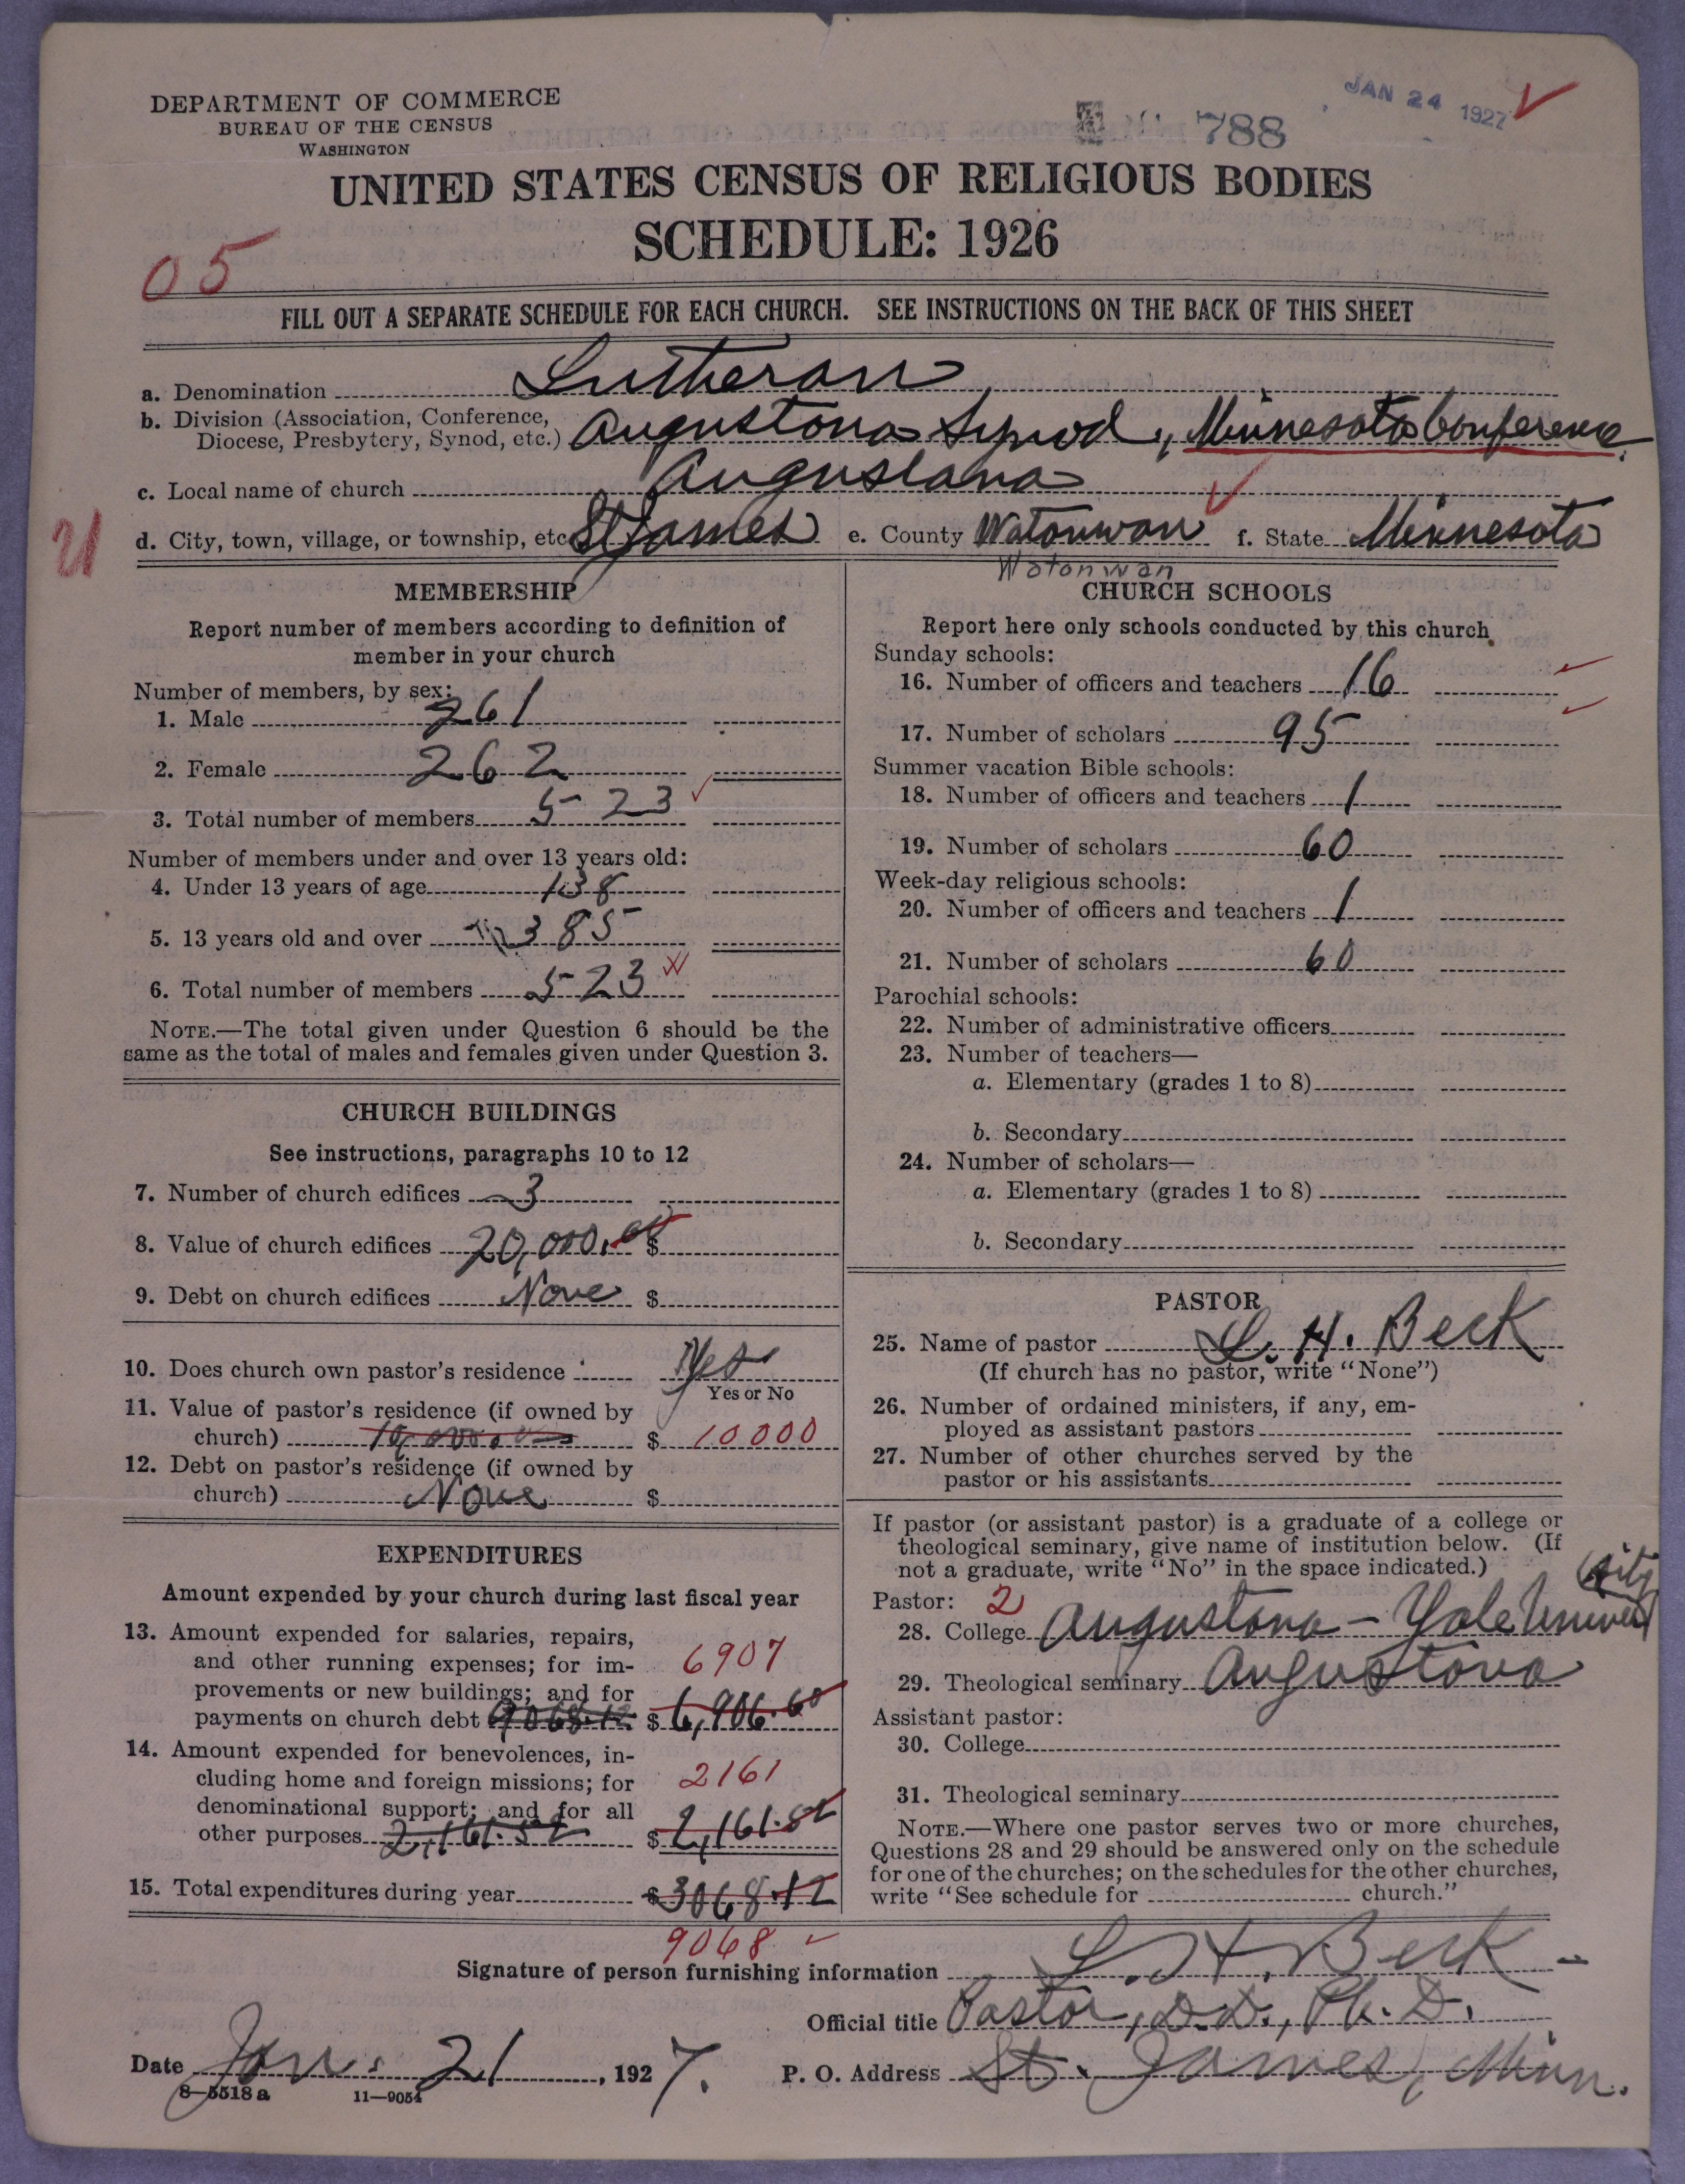 DEPARTMENT OF COMMERCE
BUREAU OF THE CENSUS
WASHINGTON
788
JAN 24 1927
UNITED STATES CENSUS OF RELIGIOUS BODIES
SCHEDULE: 1926
05
FILL OUT A SEPARATE SCHEDULE FOR EACH CHURCH. SEE INSTRUCTIONS ON THE BACK OF THIS SHEET
a. Denomination Lutheran
b. Division (Association, Conference,
Diocese, Presbytery, Synod, etc.) Augustana Synod, Minnesota Conference.
c. Local name of church Augustana
d. City, town, village, or township, etc. St James e. County Watonwan f. State Minnesota
Watonwan
MEMBERSHIP
Report number of members according to definition of
member in your church
Number of members, by sex:
1. Male 261
2. Female 262
3. Total number of members 523
Number of members under and over 13 years old:
4. Under 13 years of age 138
5. 13 years old and over 385
6. Total number of members 523
NOTE.—The total given under Question 6 should be the
same as the total of males and females given under Question 3.
CHURCH BUILDINGS
See instructions, paragraphs 10 to 12
7. Number of church edifices 3
8. Value of church edifices 20,000.00 $
9. Debt on church edifices None $
10. Does church own pastor's residence Yes
Yes or No
11. Value of pastor's residence (if owned by
church) 10,000.00 $ 10000
12. Debt on pastor's residence (if owned by
church) None $
EXPENDITURES
Amount expended by your church during last fiscal year
13. Amount expended for salaries, repairs,
and other running expenses; for im- 6907
provements or new buildings; and for
payments on church debt 9068.12 $ 6,906.60
14. Amount expended for benevolences, in-
cluding home and foreign missions; for 2161
denominational support; and for all
other purposes 2,161.52 $ 2,161.52
15. Total expenditures during year $ 3068.12
9068
CHURCH SCHOOLS
Report here only schools conducted by this church.
Sunday schools:
16. Number of officers and teachers 16
17. Number of scholars 95
Summer vacation Bible schools:
18. Number of officers and teachers 1
19. Number of scholars 60
Week-day religious schools:
20. Number of officers and teachers 1
21. Number of scholars 60
Parochial schools:
22. Number of administrative officers
23. Number of teachers—
a. Elementary (grades 1 to 8)
b. Secondary
24. Number of scholars—
a. Elementary (grades 1 to 8)
b. Secondary
PASTOR
25. Name of pastor L. H. Beck
(If church has no pastor, write "None")
26. Number of ordained ministers, if any, em-
ployed as assistant pastors
27. Number of other churches served by the
pastor or his assistants
If pastor (or assistant pastor) is a graduate of a college or
theological seminary, give name of institution below. (If
not a graduate, write "No" in the space indicated.)
Pastor: 2
28. College Augustana – Yale University
29. Theological seminary Augustana
Assistant pastor:
30. College
31. Theological seminary
NOTE.—Where one pastor serves two or more churches,
Questions 28 and 29 should be answered only on the schedule
for one of the churches; on the schedules for the other churches,
write "See schedule for church."
Signature of person furnishing information L. H. Beck
Official title Pastor, D.D., Ph.D.
Date Jan. 21, 1927. P. O. Address St. James, Minn.
8—5518 a 11—9054